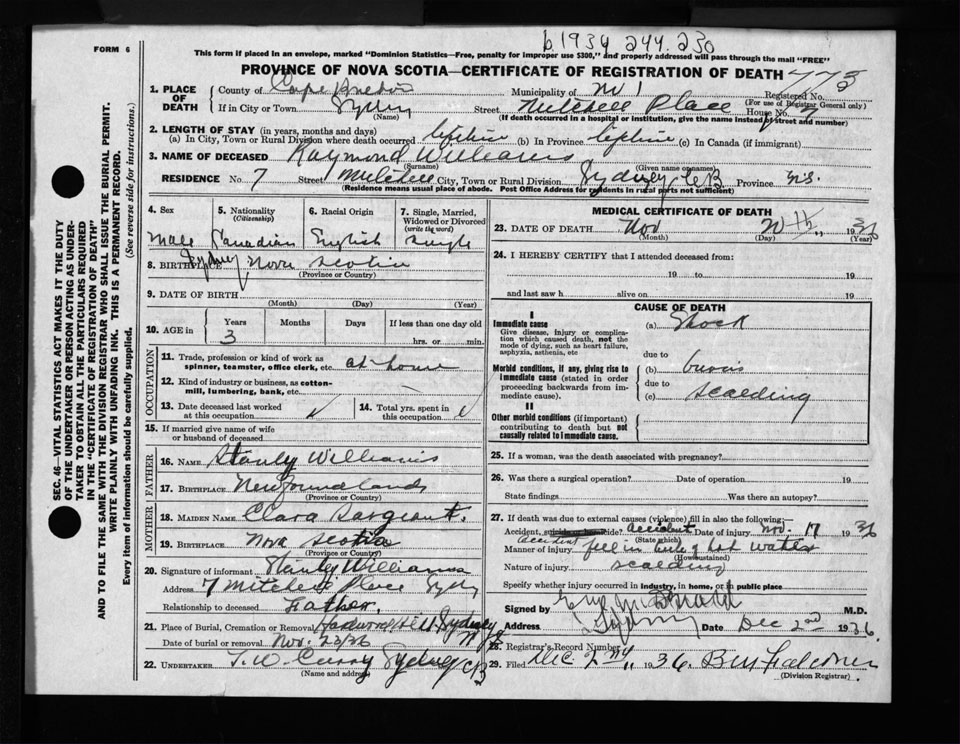 b. 1934 244. 230
FORM 6
This form if placed in an envelope, marked "Dominion Statistics—Free, penalty for improper use $300," and properly addressed will pass through the mail "FREE"
PROVINCE OF NOVA SCOTIA—CERTIFICATE OF REGISTRATION OF DEATH 773
1. PLACE OF DEATH County of Cape Breton Municipality of No 1 Registered No.
(For use of Registrar General only)
If in City or Town Sydney Street Mitchell Place House No. 7
(Name) (If death occurred in a hospital or institution, give the name instead of street and number)
2. LENGTH OF STAY (in years, months and days)
(a) In City, Town or Rural Division where death occurred lifetime (b) In Province lifetime (c) In Canada (if immigrant)
3. NAME OF DECEASED Raymond Williams
(Surname) (Given name or names)
RESIDENCE No. 7 Street Mitchell City, Town or Rural Division Sydney, C.B. Province N.S.
(Residence means usual place of abode. Post Office Address for residents in rural parts not sufficient)
4. Sex 5. Nationality 6. Racial Origin 7. Single, Married, Widowed or Divorced
(Citizenship) (write the word)
Male Canadian English single
8. BIRTHPLACE Sydney Nova Scotia
(Province or Country)
9. DATE OF BIRTH
(Month) (Day) (Year)
10. AGE in Years Months Days If less than one day old
3 hrs. or min.
OCCUPATION
11. Trade, profession or kind of work as spinner, teamster, office clerk, etc. at home
12. Kind of industry or business, as cotton-mill, lumbering, bank, etc.
13. Date deceased last worked at this occupation 14. Total yrs. spent in this occupation
15. If married give name of wife or husband of deceased
FATHER
16. NAME Stanly Williams
17. BIRTHPLACE Newfoundland
(Province or Country)
MOTHER
18. MAIDEN NAME Clara Sargeant.
19. BIRTHPLACE Nova Scotia
(Province or Country)
20. Signature of informant Stanly Williams
Address 7 Mitchell Place Sydney
Relationship to deceased Father.
21. Place of Burial, Cremation or Removal Hardwood Hill Sydney
Date of burial or removal Nov. 23/36
22. UNDERTAKER T. W. Curry Sydney CB
(Name and address)
MEDICAL CERTIFICATE OF DEATH
23. DATE OF DEATH Nov 20th, 1936
(Month) (Day) (Year)
24. I HEREBY CERTIFY that I attended deceased from:
19 to 19
and last saw h alive on 19
CAUSE OF DEATH
I
Immediate cause (a) Shock
Give disease, injury or complication which caused death, not the mode of dying, such as heart failure, asphyxia, asthenia, etc
due to
Morbid conditions, if any, giving rise to immediate cause (stated in order proceeding backwards from immediate cause). (b) burns
due to
(c) scalding
II
Other morbid conditions (if important) contributing to death but not causally related to immediate cause.
25. If a woman, was the death associated with pregnancy?
26. Was there a surgical operation? Date of operation 19
State findings Was there an autopsy?
27. If death was due to external causes (violence) fill in also the following:—
Accident, suicide or homicide. accident Date of injury Nov. 17 1936
accident (State which)
Manner of injury fell in tub of hot water
(How sustained)
Nature of injury scalding
Specify whether injury occurred in industry, in home, or in public place
Signed by M.D.
Address Sydney Date Dec 2nd 1936.
28. Registrar's Record Number
29. Filed Dec 1936.
(Division Registrar)
SEC. 46—VITAL STATISTICS ACT MAKES IT THE DUTY
OF THE UNDERTAKER OR PERSON ACTING AS UNDER-
TAKER TO OBTAIN ALL THE PARTICULARS REQUIRED
IN THE "CERTIFICATE OF REGISTRATION OF DEATH"
AND TO FILE THE SAME WITH THE DIVISION REGISTRAR WHO SHALL ISSUE THE BURIAL PERMIT.
WRITE PLAINLY WITH UNFADING INK. THIS IS A PERMANENT RECORD.
Every item of information should be carefully supplied. (See reverse side for instructions.)